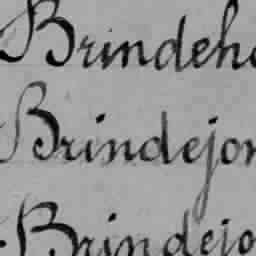 Brindeho
Brindejon
Brindejo